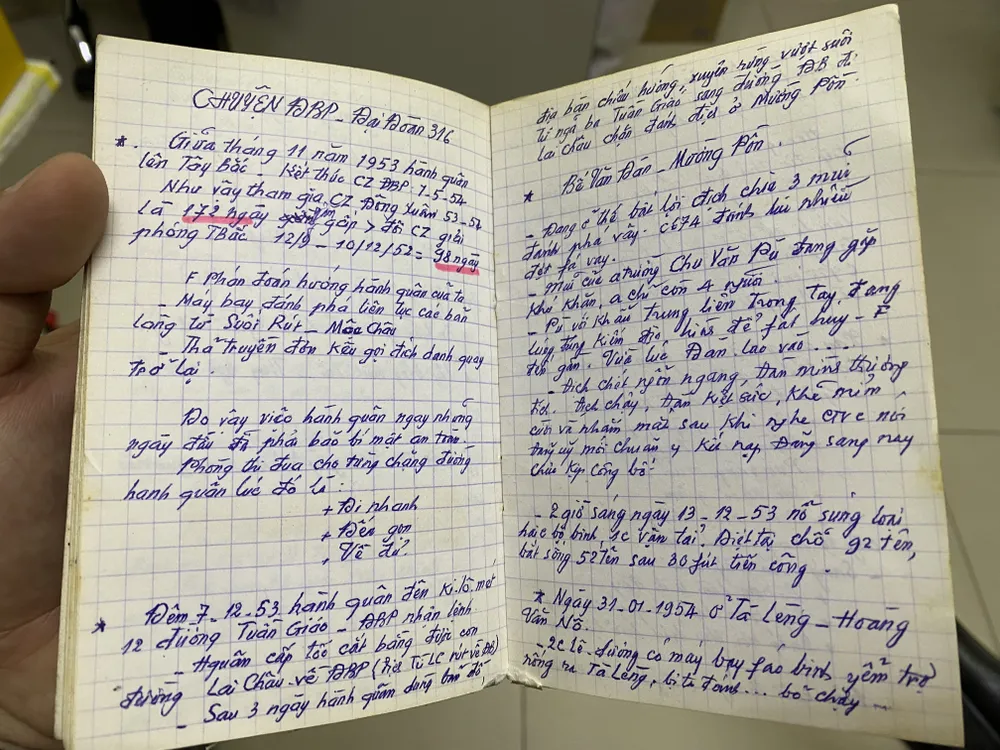 CHUYỆN ĐBP - Đại Đoàn 316
* Giữa tháng 11 năm 1953 hành quân
lên Tây Bắc - Kết thúc CZ ĐBP 7-5-54
Như vậy tham gia CZ Đông Xuân 53-54
là 172 ngày gấp > đôi CZ giải
phóng TBắc 12/9 - 10/12/52 = 98 ngày
F Phán đoán hướng hành quân của ta
- Máy bay đánh phá liên tục các bản
làng từ Suối Rút - Mộc Châu
- Thả truyền đơn kêu gọi đích danh quay
trở lại.
Do vậy việc hành quân ngay những
ngày đầu đã phải bảo bí mật an toàn.
Phong thi đua cho từng chặng đường
hành quân lúc đó là:
+ Đi nhanh
+ Đến gọn
+ Về đủ.
* Đêm 7-12-53 hành quân đến Ki lô mét
12 đường Tuần Giáo - ĐBP nhận lệnh
- Hquân cấp tốc cắt bằng được con
đường Lai Châu về ĐBP (địch Từ LC rút về ĐB)
- Sau 3 ngày hành quân dùng bản đồ
địa bàn chiếu hướng, xuyên rừng vượt suối
từ ngã ba Tuần Giáo sang đường ĐB đi
lai Châu chặn đánh địch ở Mường Pồn.
* Bế Văn Đàn - Mường Pồn.
- Đang ở thế bất lợi địch chia 3 mũi
đánh phá vây. C674 đánh lui nhiều
đợt fá vây.
- Mũi của atrưởng Chu Văn Pù đang gặp
khó khăn, a chỉ còn 4 người.
- Pù với khẩu trung liên trong tay, đang
lúng túng kiếm địa hình để fát huy - F
đến gần. Vừa lúc Đàn lao vào ....
- Địch chết ngổn ngang, Đàn mình thương
Địch chạy, Đàn kiệt sức, khẽ mỉm
cười và nhắm mắt sau khi nghe CTVC nói
Đảng uỷ mới chuẩn y Kết nạp Đảng sáng nay
chưa kịp công bố.
- 2 giờ sáng ngày 13-12-53 nổ súng loại
bộ binh, 1c vận tải. Diệt tại chỗ 92 tên,
bắt sống 52 tên sau 30 fút tiến công.
* Ngày 31-01-1954 ở Tà Lèng - Hoàng
Văn Nô.
- 2c lê-dương có máy bay fáo binh yểm trợ
rồng ra Tà Lèng, bị ta đánh... bỏ chạy...